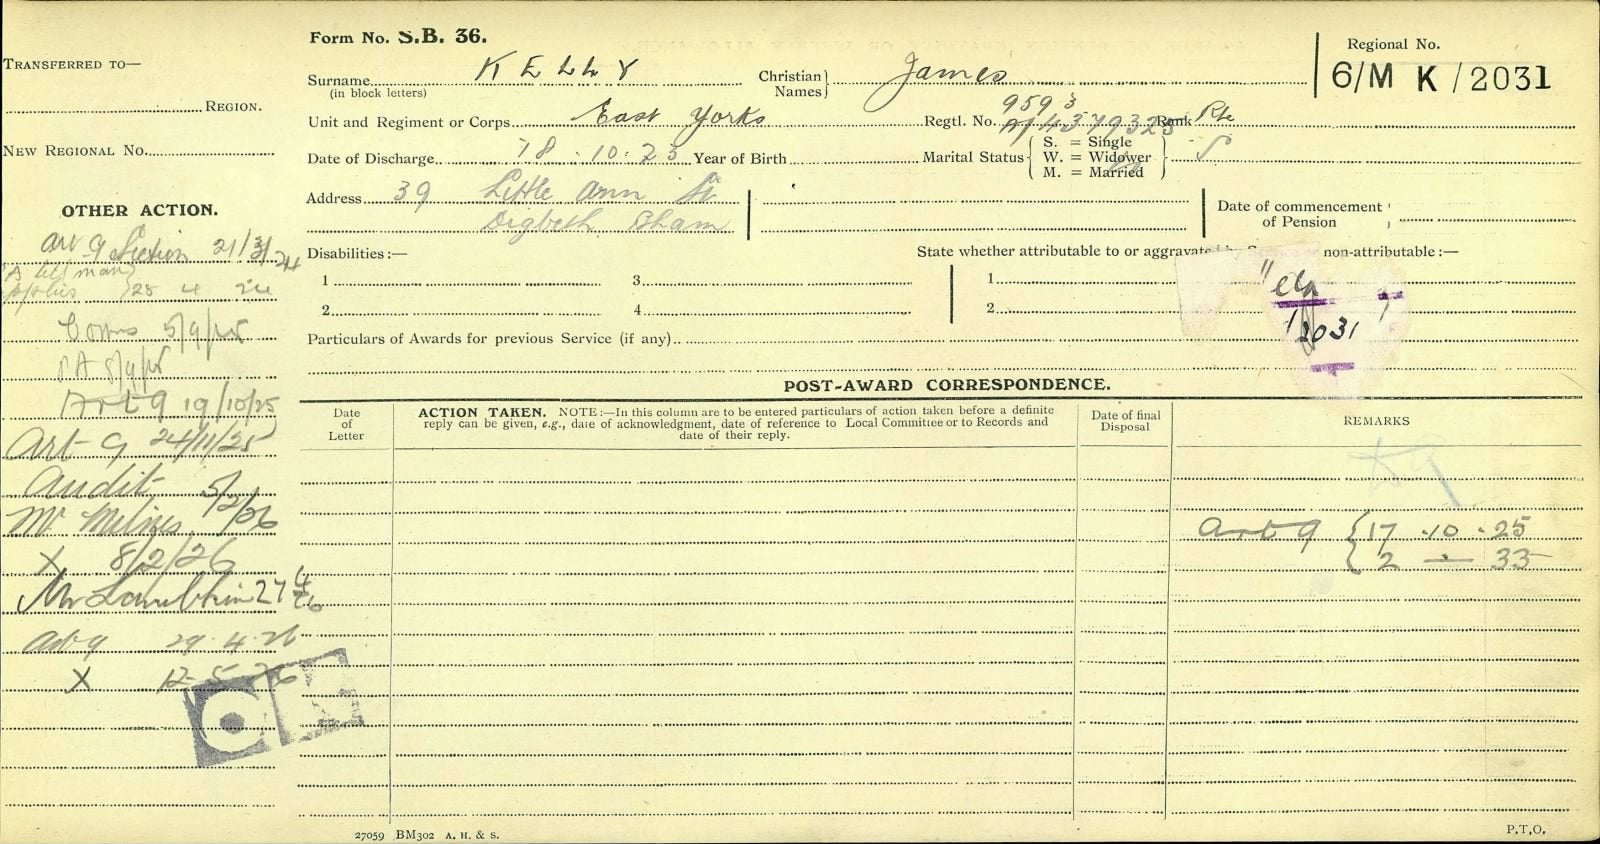 Form No. S.B. 36.
TRANSFERRED TO—
REGION.
NEW REGIONAL No.
OTHER ACTION.
Art 9 Section 21/3/24
28 4 24
5/9/25
PA 8/9/25
Art 9 19/10/25
Art 9 24/11/25
Audit 5/2/26
Mr
X 8/2/26
Mr 27 4/26
Art 9 29.4.26
X 12-5-26
Surname KELLY
(in block letters)
Christian Names} James
Regional No.
6/M K/2031
Unit and Regiment or Corps East Yorks
Regtl. No. 9593
4379323 Rank Pte
Date of Discharge 18.10.23 Year of Birth
Marital Status { S. = Single
W. = Widower
M. = Married } S
Address 39 Little Ann St
Digbeth Bham
Date of commencement
of Pension
Disabilities:—
State whether attributable to or aggravated by Service or non-attributable:—
1 3 1
2 4 2
2031
Particulars of Awards for previous Service (if any)
POST-AWARD CORRESPONDENCE.
Date
of
Letter
ACTION TAKEN. NOTE:—In this column are to be entered particulars of action taken before a definite
reply can be given, e.g., date of acknowledgment, date of reference to Local Committee or to Records and
date of their reply.
Date of final
Disposal
REMARKS
Art 9 { 17 .10 .25
2 — 33
27059 BM302 A. H. & S.
P.T.O.